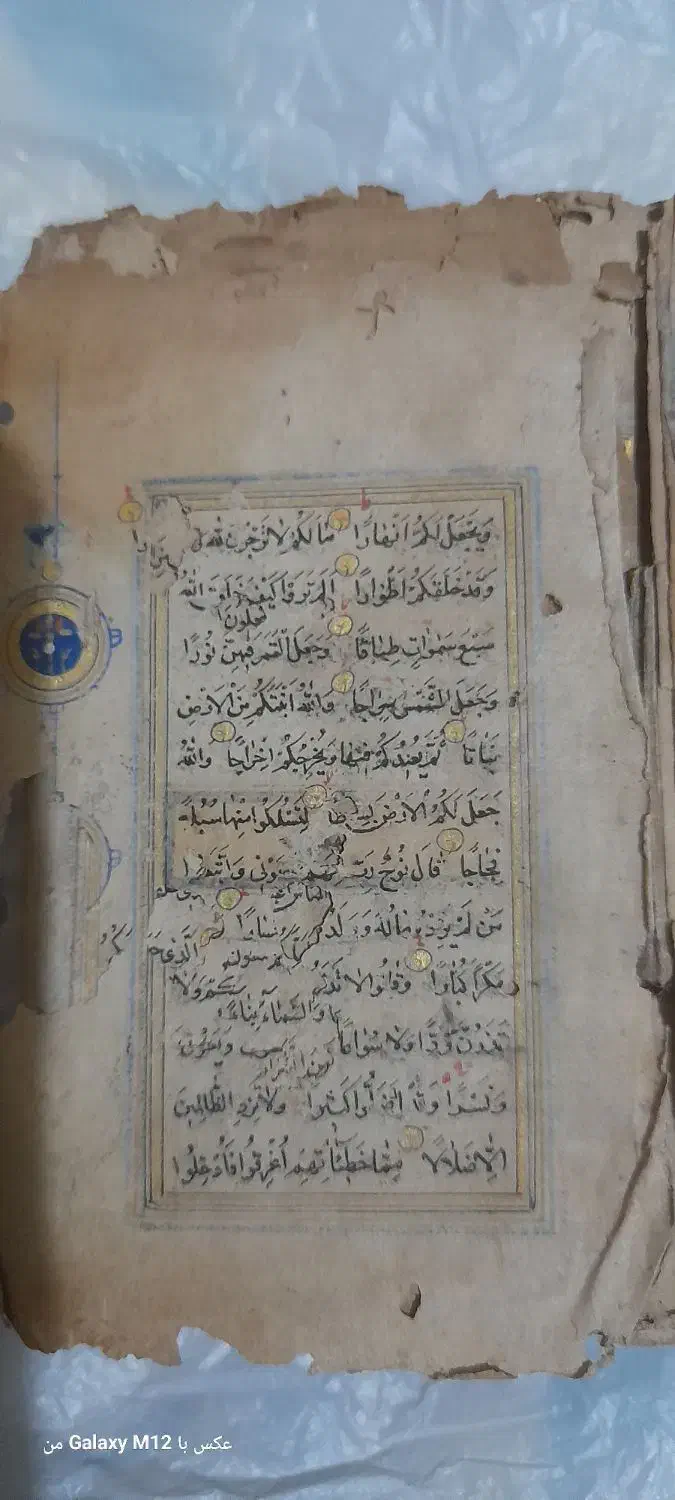 وَيَجْعَلْ لَكُمْ اَنْهَارًا مَالَكُمْ لَا تَرْجُونَ لِلّٰهِ
وَقَدْ خَلَقَكُمْ اَطْوَارًا اَلَمْ تَرَوْا كَيْفَ خَلَقَ اللّٰهُ
سَبْعَ سَمٰوَاتٍ طِبَاقًا وَجَعَلَ الْقَمَرَ فِيهِنَّ نُورًا
وَجَعَلَ الشَّمْسَ سِرَاجًا وَاللّٰهُ اَنْبَتَكُمْ مِنَ الْاَرْضِ
نَبَاتًا ثُمَّ يُعِيدُكُمْ فِيهَا وَيُخْرِجُكُمْ اِخْرَاجًا وَاللّٰهُ
جَعَلَ لَكُمُ الْاَرْضَ بِسَاطًا لِتَسْلُكُوا مِنْهَا سُبُلًا
فِجَاجًا قَالَ نُوحٌ رَبِّ
مَنْ لَمْ يَزِدْهُ مَالُهُ
مَكْرًا كُبَّارًا وَقَالُوا لَا تَذَرُنَّ
وَالسَّمَاءَ بِنَاءً
تَذَرُنَّ وَدًّا وَلَا سُوَاعًا وَيَعُوقَ
وَنَسْرًا كَثِيرًا وَلَا تَزِدِ الظَّالِمِينَ
اِلَّا ضَلَالًا مِمَّا خَطِيئَاتِهِمْ اُغْرِقُوا فَاُدْخِلُوا
عکس با Galaxy M12 من